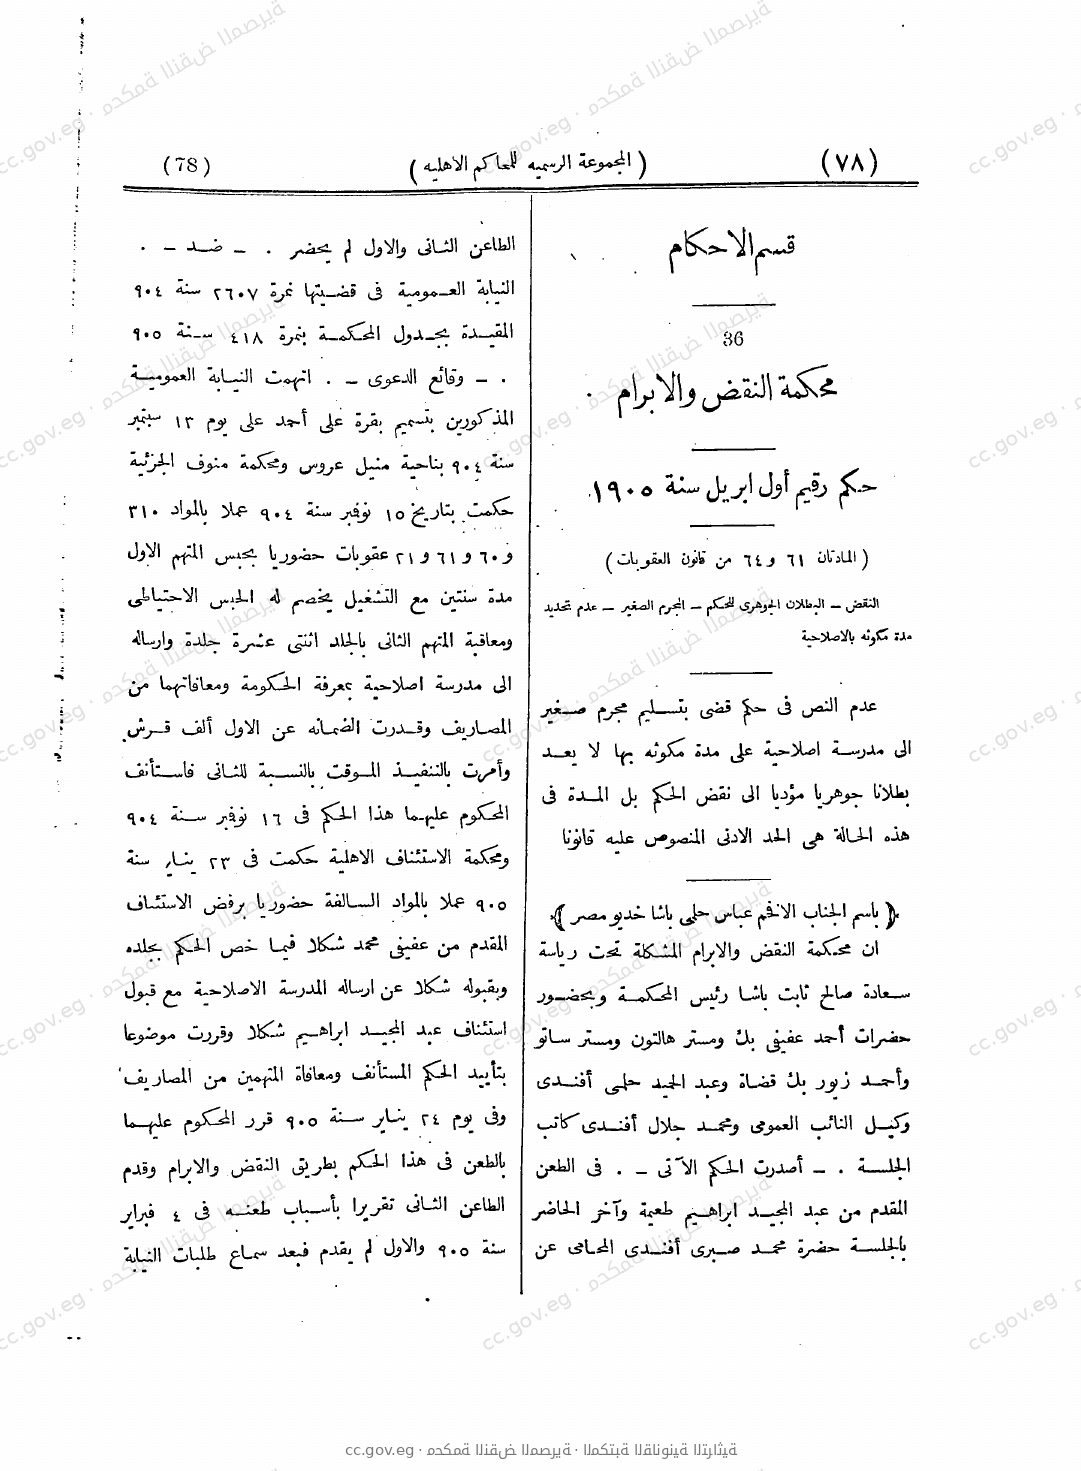 (٧٨)
( المجموعة الرسميه للمحاكم الاهليه )
(78)
قسم الاحكام
36
محكمة النقض والابرام
حكم رقيم أول ابريل سنة ١٩٠٥
( المادتان ٦١ و ٦٤ من قانون العقوبات )
النقض – البطلان الجوهرى للحكم – المجرم الصغير – عدم تحديد
مدة مكوثه بالاصلاحية
عدم النص فى حكم قضى بتسليم مجرم صغير
الى مدرسة اصلاحية على مدة مكوثه بها لا يعد
بطلانا جوهريا مؤديا الى نقض الحكم بل المدة فى
هذه الحالة هى الحد الادنى المنصوص عليه قانونا
﴿ باسم الجناب الافخم عباس حلمى باشا خديو مصر ﴾
ان محكمة النقض والابرام المشكلة تحت رياسة
سعادة صالح ثابت باشا رئيس المحكمة وبحضور
حضرات أحمد عفيفى بك ومستر هالتون ومستر ساتو
وأحمد زيور بك قضاة وعبد الحميد حلمى أفندى
وكيل النائب العمومى ومحمد جلال أفندى كاتب
الجلسة . – أصدرت الحكم الآتى – . فى الطعن
المقدم من عبد المجيد ابراهيم طعيمة وآخر الحاضر
بالجلسة حضرة محمد صبرى أفندى المحامى عن
الطاعن الثانى والاول لم يحضر . – ضد – .
النيابة العمومية فى قضيتها نمرة ٢٦٠٧ سنة ٩٠٤
المقيدة بجدول المحكمة بنمرة ٤١٨ سنة ٩٠٥
. – وقائع الدعوى – . اتهمت النيابة العمومية
المذكورين بتسميم بقرة على أحمد على يوم ١٣ سبتمبر
سنة ٩٠٤ بناحية منيل عروس ومحكمة منوف الجزئية
حكمت بتاريخ ١٥ نوفمبر سنة ٩٠٤ عملا بالمواد ٣١٠
و ٦٠ و ٦١ و ٢١ عقوبات حضوريا بحبس المتهم الاول
مدة سنتين مع التشغيل يخصم له الحبس الاحتياطى
ومعاقبة المتهم الثانى بالجلد اثنتى عشرة جلدة وارساله
الى مدرسة اصلاحية بمعرفة الحكومة ومعافاتهما من
المصاريف وقدرت الضمانه عن الاول ألف قرش
وأمرت بالتنفيذ الموقت بالنسبة للثانى فاستأنف
المحكوم عليهما هذا الحكم فى ١٦ نوفمبر سنة ٩٠٤
ومحكمة الاستئناف الاهلية حكمت فى ٢٣ يناير سنة
٩٠٥ عملا بالمواد السالفة حضوريا برفض الاستئناف
المقدم من عفيفى محمد شكلا فيما خص الحكم بجلده
وبقبوله شكلا عن ارساله المدرسة الاصلاحية مع قبول
استئناف عبد المجيد ابراهيم شكلا وقررت موضوعا
بتأييد الحكم المستأنف ومعافاة المتهمين من المصاريف
وفى يوم ٢٤ يناير سنة ٩٠٥ قرر المحكوم عليهما
بالطعن فى هذا الحكم بطريق النقض والابرام وقدم
الطاعن الثانى تقريرا بأسباب طعنه فى ٤ فبراير
سنة ٩٠٥ والاول لم يقدم فبعد سماع طلبات النيابة
cc.gov.eg · محكمة النقض المصرية · المكتبة القانونية التراثية